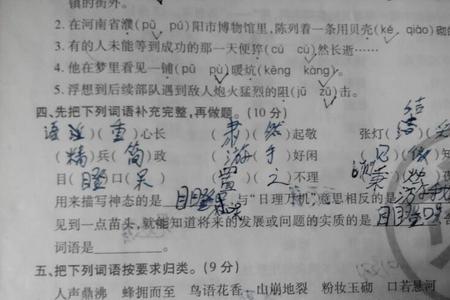 镇的街外。
2.在河南省濮(pū pú)阳市博物馆里,陈列着一条用贝壳(ké qiào)砌
3.有的人未能等到成功的那一天便猝(cù cù)然长逝……
4.他在梦里看见一铺(pū pù)暖炕(kēng kàng)。
5.浮想到后续部队遇到敌人炮火猛烈的阻(jū zǔ)击。
四、先把下列词语补充完整,再做题。(10分)
语重(重)心长 (肃)(然)起敬 张灯(结)
(精)兵(简)政 (游)手好闲 (见)(微)知
目(瞪)口(呆) (置)(之)不理
用来描写神态的是目瞪口呆,与“日理万机”意思相反的是游手
见到一点苗头,就能知道将来的发展或问题的实质的是
词语是________。
五、把下列词语按要求归类。(9分)
人声鼎沸 蜂拥而至 鸟语花香 山崩地裂 粉妆玉砌 口若悬河